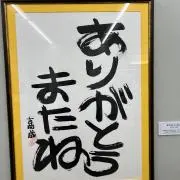 ありがとう
またね